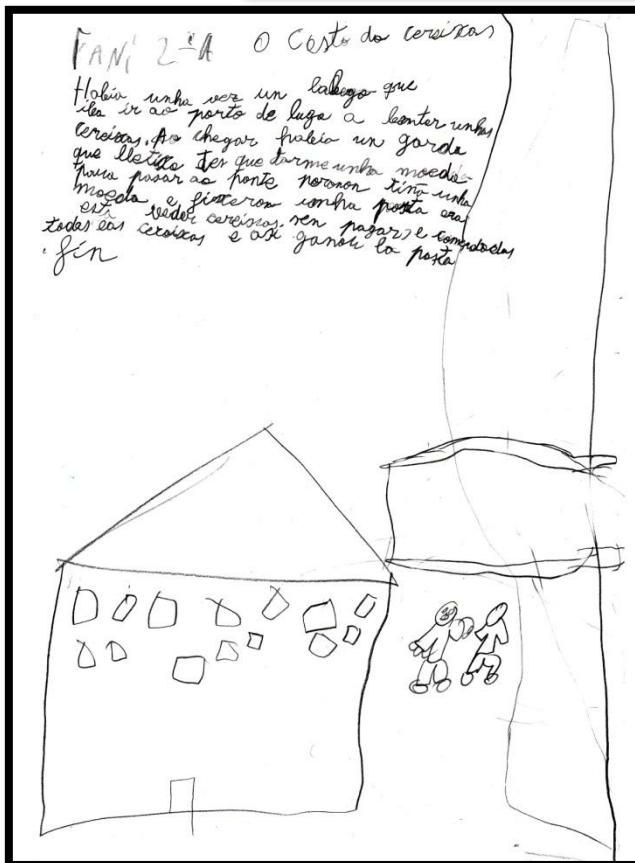 FANÍ 2ºA O Cesto da cereixas
Habia unha vez un labego que
iba ir ao porto de lugo a unhas
cereixas. Ao chegar habia un garda
que lle Ten que darme unha moeda
para pasar ao ponte poronon tiña unha
moeda e fixeron unha posta era
esta veder cereixas sen pagar e
todas eas cereixas e asi ganou la posta
fin